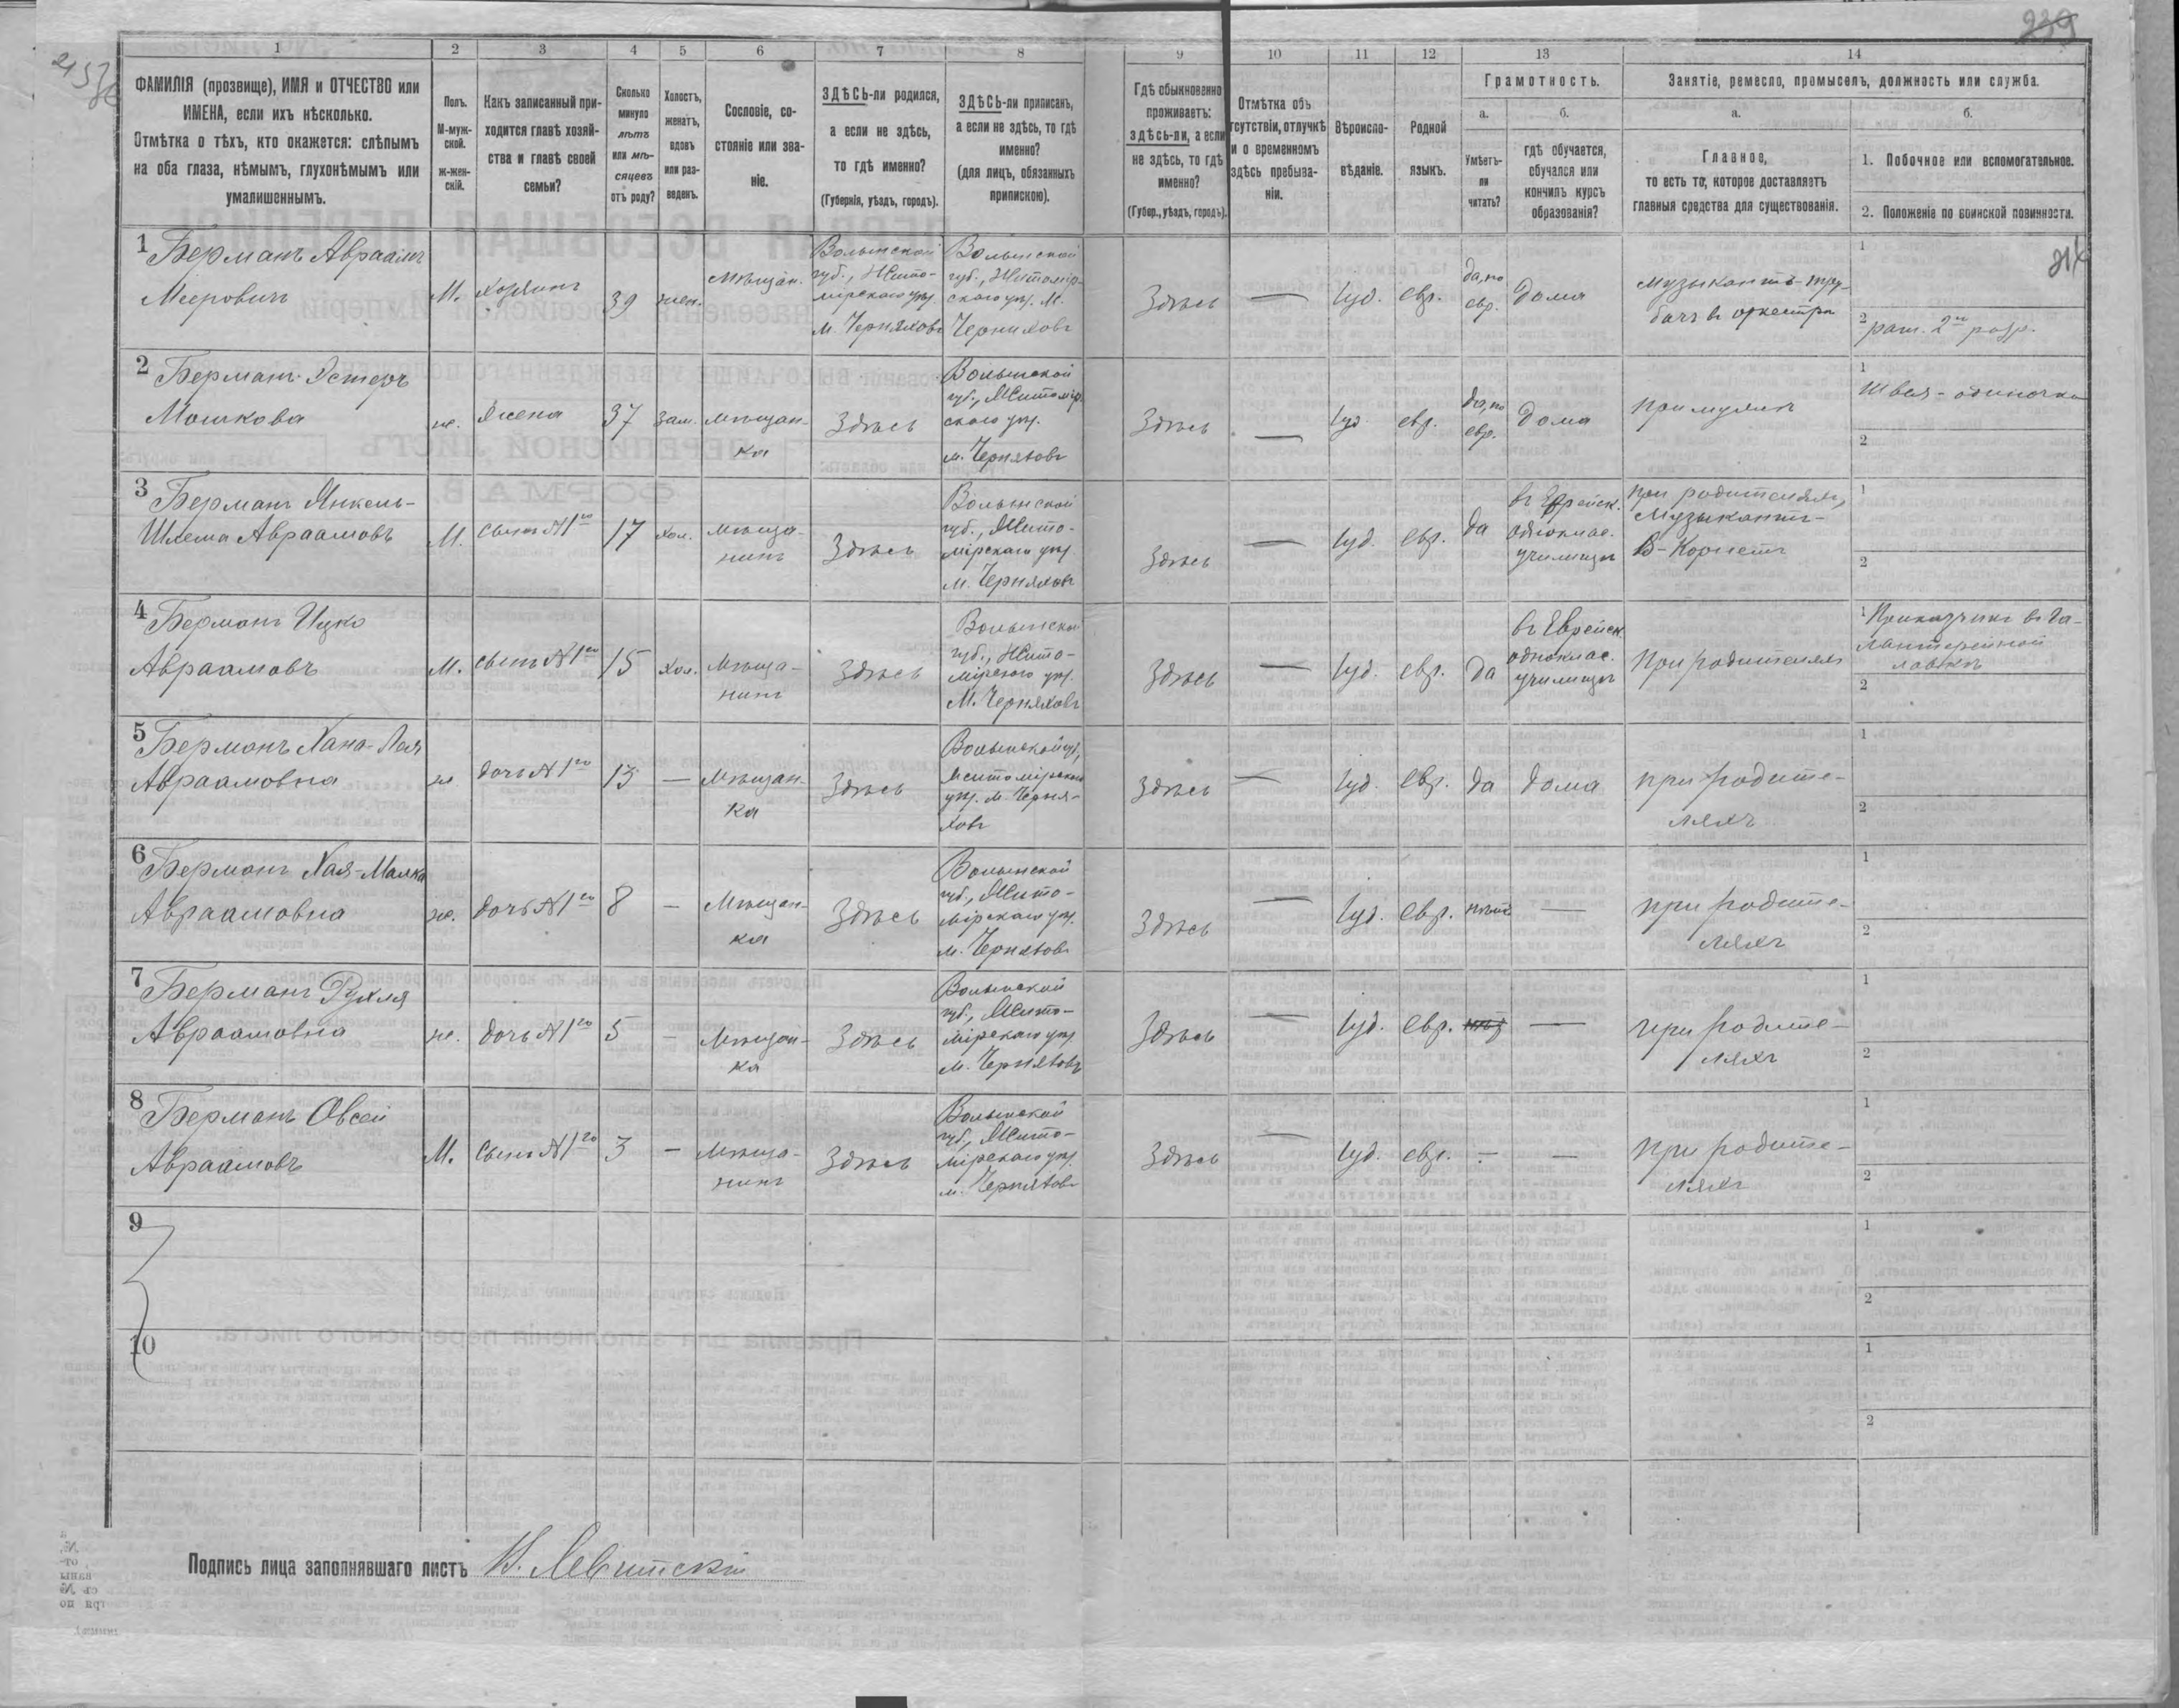 239
1 2 3 4 5 6 7 8 9 10 11 12 13 14
ФАМИЛІЯ (прозвище), ИМЯ и ОТЧЕСТВО или
ИМЕНА, если ихъ нѣсколько.
Отмѣтка о тѣхъ, кто окажется: слѣпымъ
на оба глаза, нѣмымъ, глухонѣмымъ или
умалишеннымъ.
Полъ.
М-муж-
ской.
ж-жен-
скій.
Какъ записанный при-
ходится главѣ хозяй-
ства и главѣ своей
семьи?
Сколько
минуло
лѣтъ
или мѣ-
сяцевъ
отъ роду?
Холостъ,
женатъ,
вдовъ
или раз-
веденъ.
Сословіе, со-
стояніе или зва-
ніе.
ЗДѢСЬ-ли родился,
а если не здѣсь,
то гдѣ именно?
(Губернія, уѣздъ, городъ).
ЗДѢСЬ-ли приписанъ,
а если не здѣсь, то гдѣ
именно?
(для лицъ, обязанныхъ
припискою).
Гдѣ обыкновенно
проживаетъ:
здѣсь-ли, а если
не здѣсь, то гдѣ
именно?
(Губер., уѣздъ, городъ).
Отмѣтка объ
отсутствіи, отлучкѣ
и о временномъ
здѣсь пребыва-
ніи.
Вѣроиспо-
вѣданіе.
Родной
языкъ.
Грамотность.
а.
Умѣетъ-
ли
читать?
б.
гдѣ обучается,
обучался или
кончилъ курсъ
образованія?
Занятіе, ремесло, промыселъ, должность или служба.
а.
Главное,
то есть то, которое доставляетъ
главныя средства для существованія.
б.
1. Побочное или вспомогательное.
2. Положеніе по воинской повинности.
1 Берманъ Авраамъ
Мееровичъ
М.
хозяинъ
39
жен.
мѣщан.
Волынской
губ., Жито-
мірскаго уѣз.
м. Черняховъ
Волынской
губ., Житомір-
скаго уѣз. м.
Черняховъ
Здѣсь
—
Іуд.
евр.
да, по
евр.
дома
музыкантъ-тру-
бачъ в оркестрѣ
1
2 рат. 2го разр.
2 Берманъ Эстеръ
Мошкова
ж.
жена
37
зам.
мѣщан-
ка
Здѣсь
Волынской
губ., Житомір-
скаго уѣз.
м. Черняховъ
Здѣсь
—
Іуд.
евр.
да, по
евр.
дома
при мужѣ
1 Швея-одиночка
2
3 Берманъ Янкель-
Шлема Авраамовъ
М.
сынъ №1го
17
хол.
мѣща-
нинъ
Здѣсь
Волынской
губ., Жито-
мірскаго уѣз.
м. Черняховъ
Здѣсь
—
Іуд.
евр.
да
въ Еврейск.
однокласс.
училищѣ
При родителяхъ,
музыкантъ-
В-Корнетъ
1
2
4 Берманъ Ицко
Авраамовъ
М.
сынъ №1го
15
хол.
мѣща-
нинъ
Здѣсь
Волынской
губ., Жито-
мірскаго уѣз.
м. Черняховъ
Здѣсь
—
Іуд.
евр.
да
въ Еврейск.
однокласс.
училищѣ
При родителяхъ
1 Приказчикъ въ Га-
лантерейной
лавкѣ
2
5 Берманъ Хана-Лея
Авраамовна
ж
дочь №1го
13
—
мѣщан-
ка
Здѣсь
Волынской губ.,
Житомірскаго
уѣз. м. Черня-
ховъ
Здѣсь
—
Іуд.
евр.
да
дома
при родите-
ляхъ
1
2
6 Берманъ Хая-Малка
Авраамовна
ж.
дочь №1го
8
—
Мѣщан-
ка
Здѣсь
Волынской
губ., Жито-
мірскаго уѣз.
м. Черняховъ
Здѣсь
—
Іуд.
евр.
нѣтъ
—
при родите-
ляхъ
1
2
7 Берманъ Рухля
Авраамовна
ж.
дочь №1го
5
—
Мѣщан-
ка
Здѣсь
Волынской
губ., Жито-
мірскаго уѣз.
м. Черняховъ
Здѣсь
—
Іуд.
евр.
—
при родите-
ляхъ
1
2
8 Берманъ Овсей
Авраамовъ
М.
Сынъ №1го
3
—
мѣща-
нинъ
Здѣсь
Волынской
губ., Жито-
мірскаго уѣз.
м. Черняховъ
Здѣсь
—
Іуд.
евр.
—
—
при родите-
ляхъ
1
2
9
1
2
10
1
2
Подпись лица заполнявшаго листъ